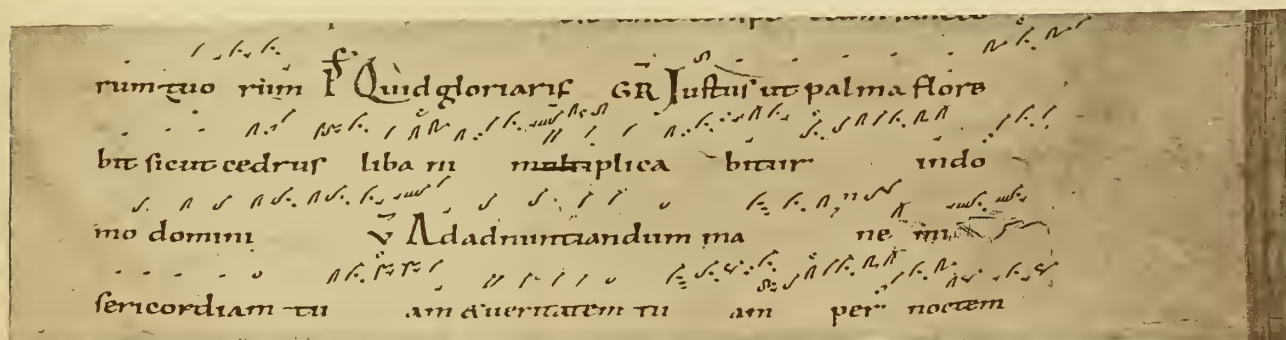 rum tuo rum Ps Quid gloriaris GR Iustus ut palma flore
bit sicut cedrus liba ni multiplica bitur indo
mo domini V Ad adnuntiandum ma ne mi
sericordiam tu am & ueritatem tu am per noctem